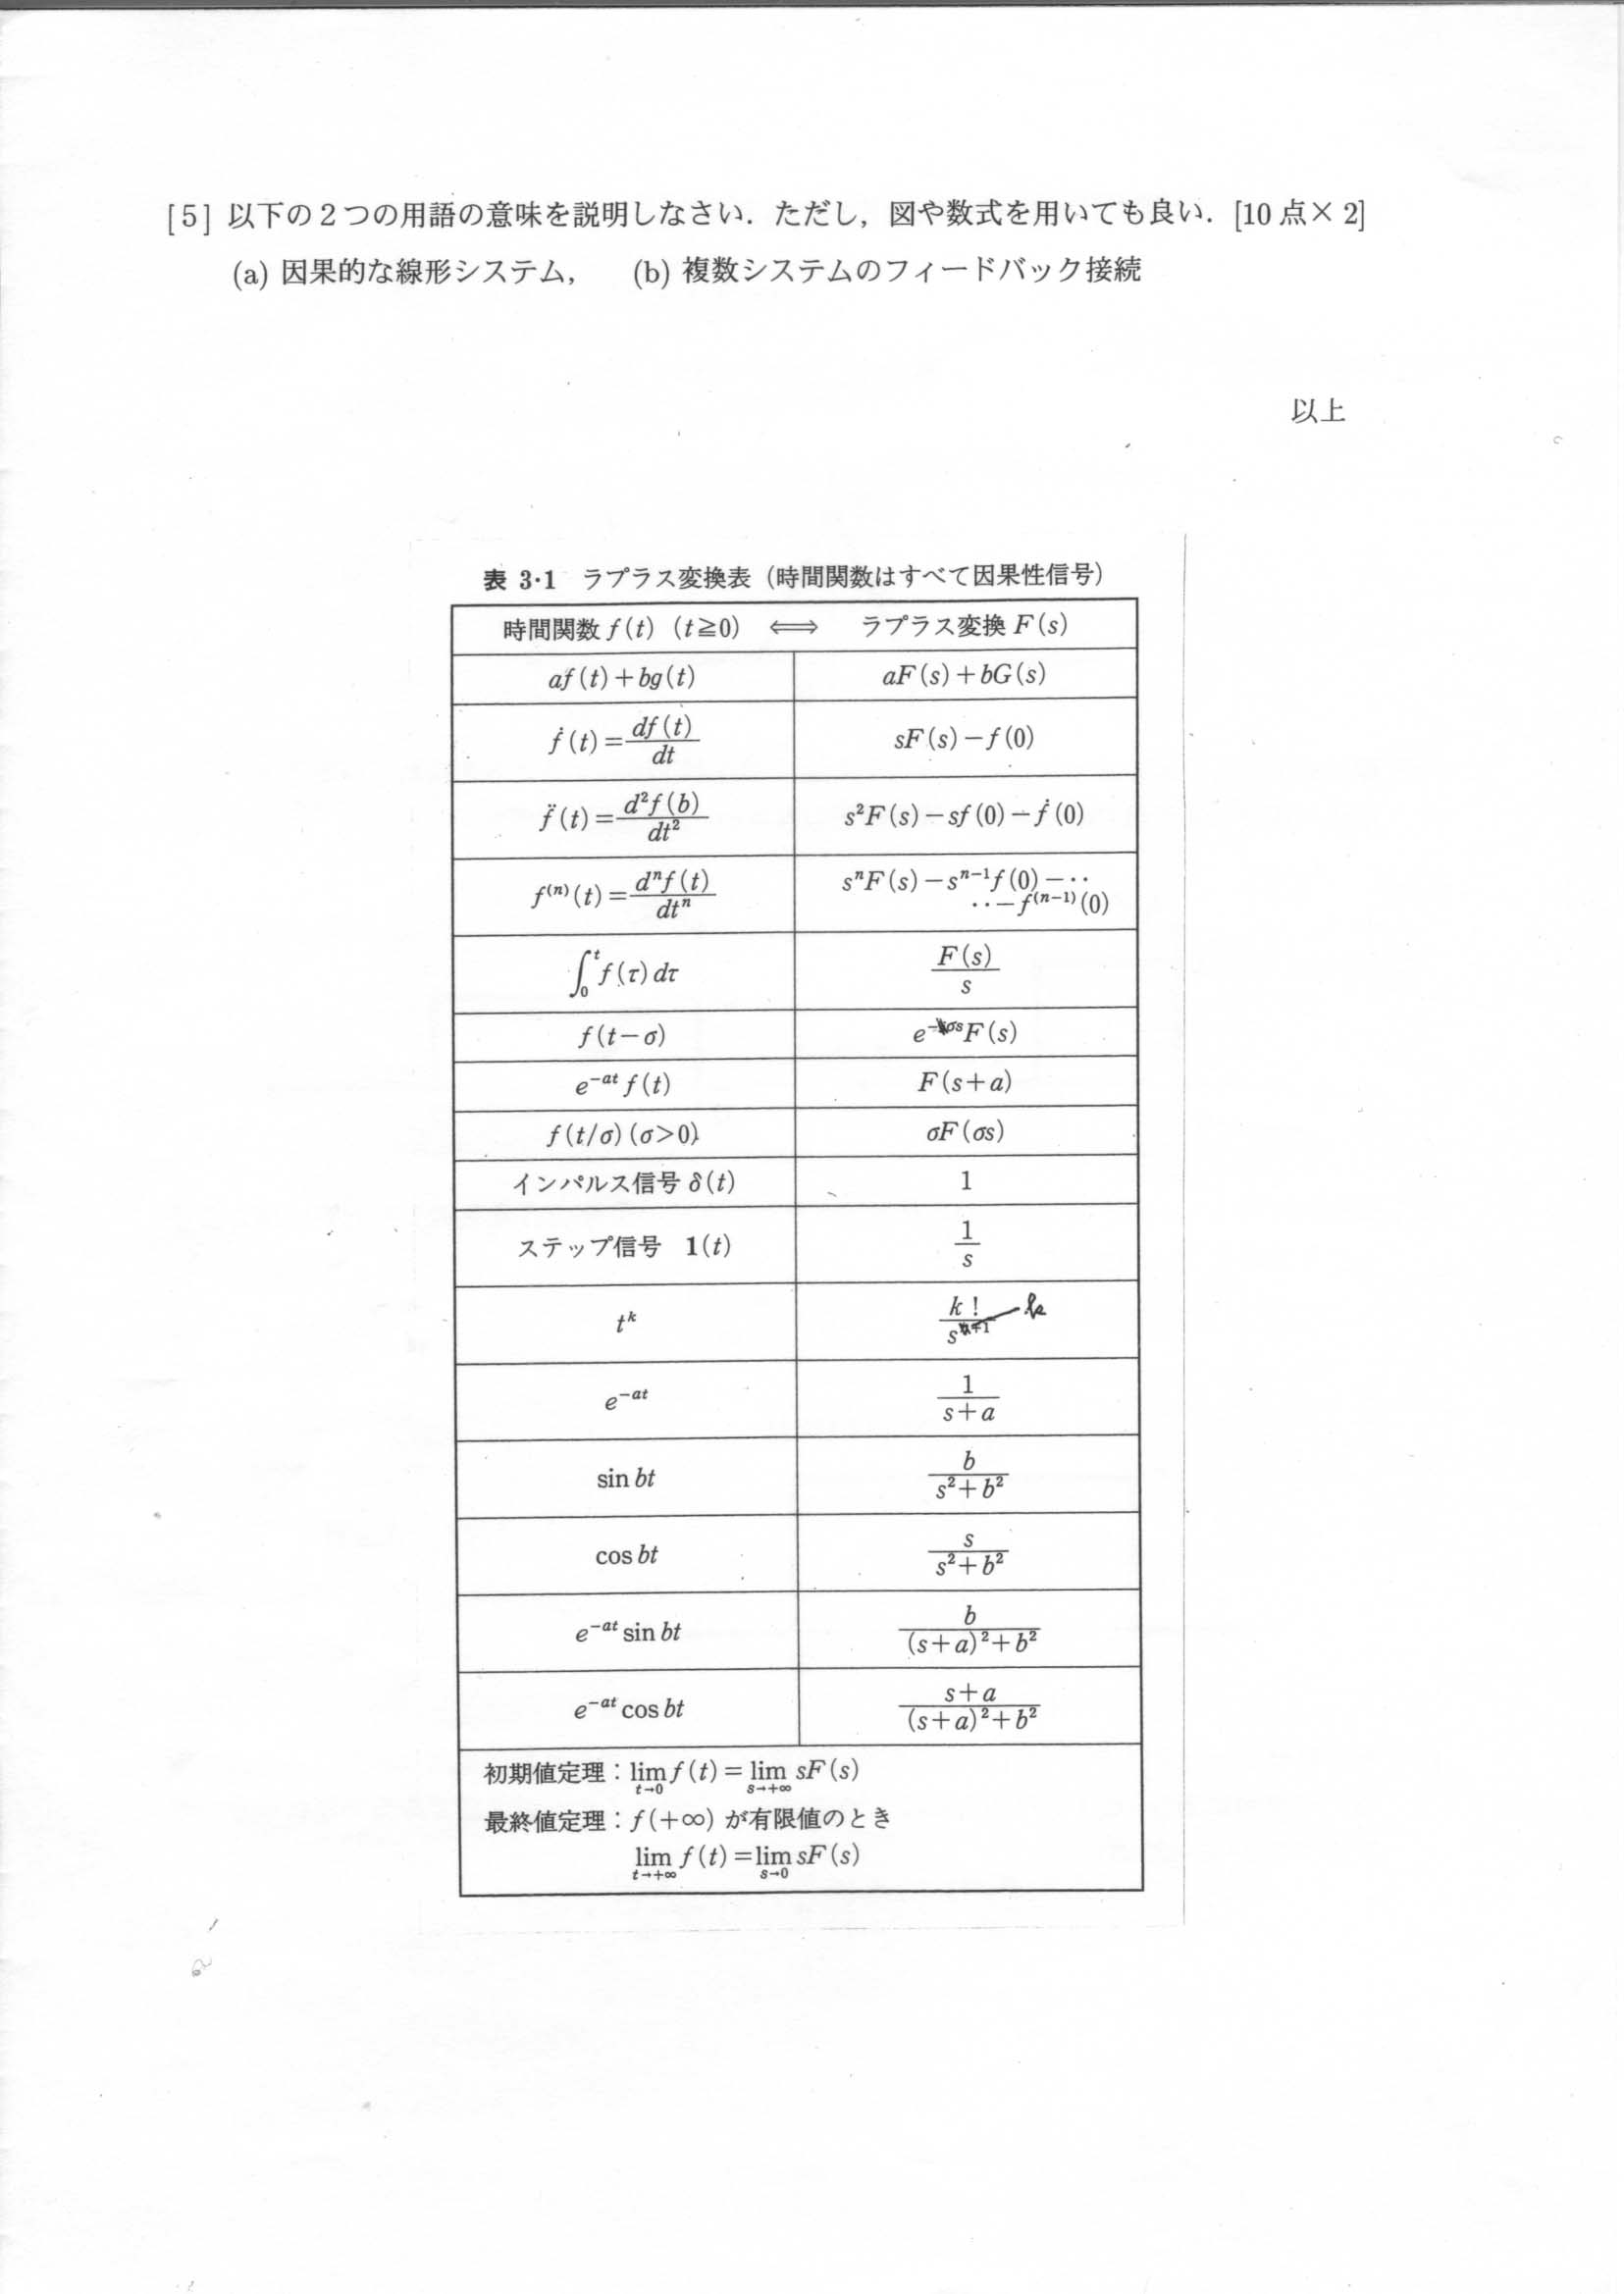 [5] 以下の2つの用語の意味を説明しなさい．ただし，図や数式を用いても良い．[10 点× 2]
(a) 因果的な線形システム,　(b) 複数システムのフィードバック接続
以上
表 3･1　ラプラス変換表（時間関数はすべて因果性信号）
時間関数 f(t)（t≧0） ⟺ ラプラス変換 F(s)
af(t)+bg(t)　aF(s)+bG(s)
ḟ(t)=df(t)/dt　sF(s)−f(0)
f̈(t)=d²f(b)/dt²　s²F(s)−sf(0)−ḟ(0)
f⁽ⁿ⁾(t)=dⁿf(t)/dtⁿ　sⁿF(s)−sⁿ⁻¹f(0)−‥
‥−f⁽ⁿ⁻¹⁾(0)
∫₀ᵗ f(τ)dτ　F(s)/s
f(t−σ)　e^{−σs}F(s)
e^{−at}f(t)　F(s+a)
f(t/σ)(σ>0)　σF(σs)
インパルス信号 δ(t)　1
ステップ信号　1(t)　1/s
t^k　k!/s^{+1} k
e^{−at}　1/(s+a)
sin bt　b/(s²+b²)
cos bt　s/(s²+b²)
e^{−at} sin bt　b/((s+a)²+b²)
e^{−at} cos bt　(s+a)/((s+a)²+b²)
初期値定理：lim_{t→0} f(t)=lim_{s→+∞} sF(s)
最終値定理：f(+∞) が有限値のとき
lim_{t→+∞} f(t)=lim_{s→0} sF(s)